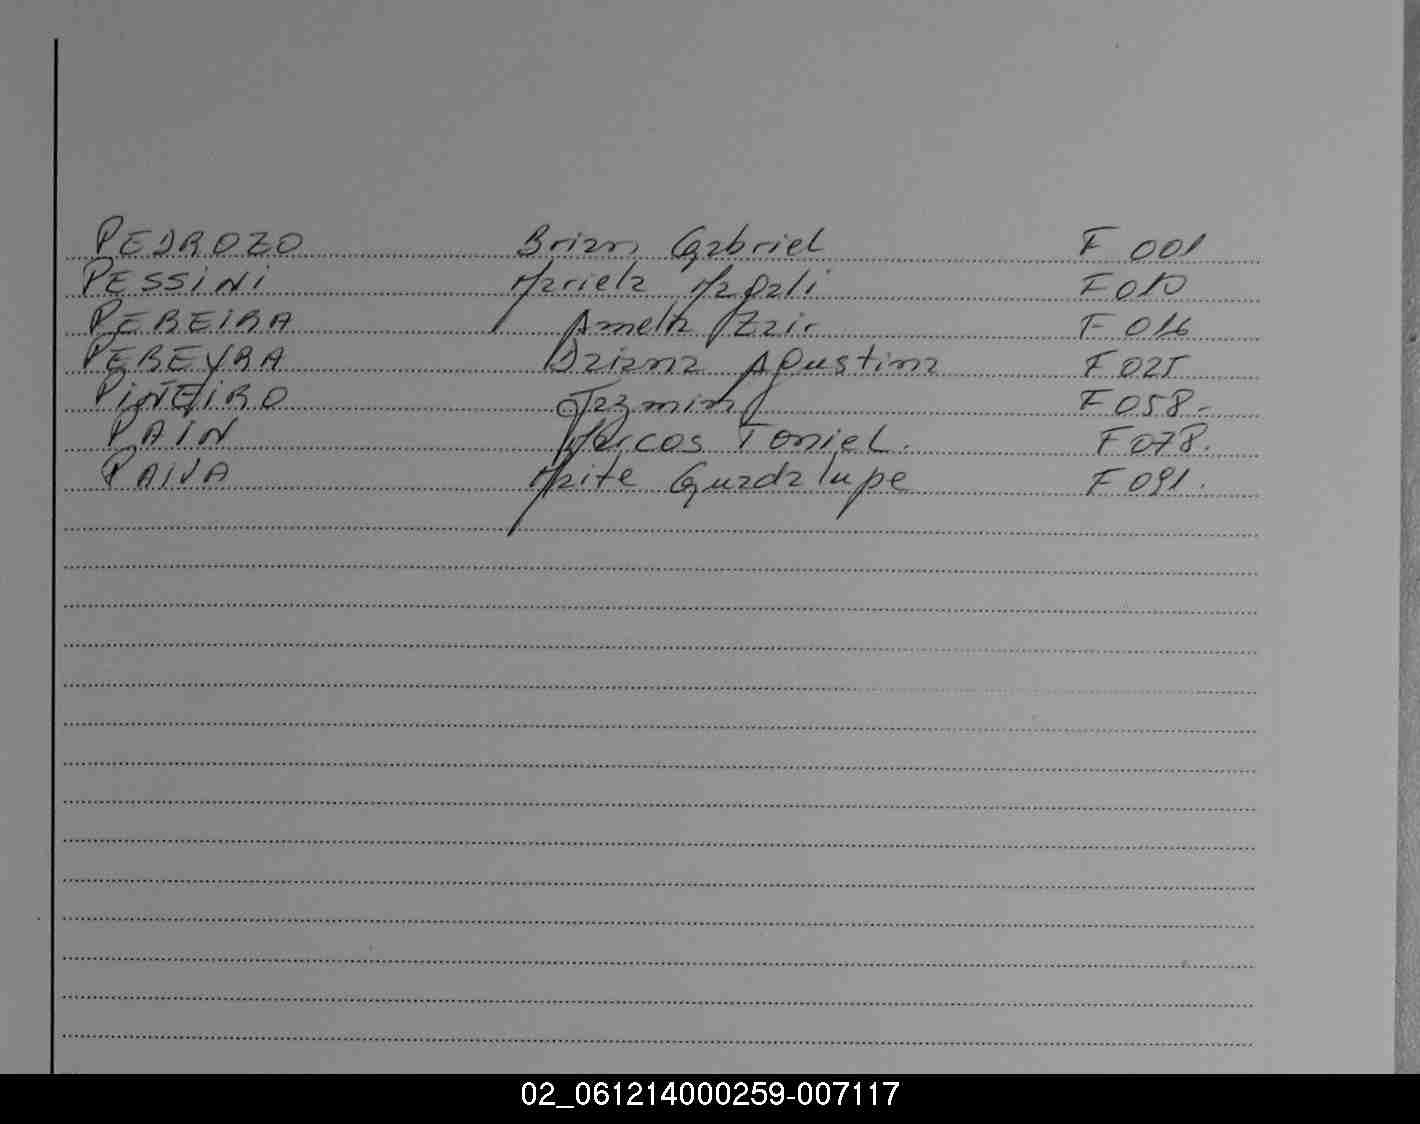 PEDROZO Brian Gabriel F 001
PESSINI Mariela Magali F 010
PEREIRA Amelia Zair F 016
PEREYRA Daiana Agustina F 025
PIÑEIRO Jazmin F 058-
PAIN Marcos Toniel. F 078.
PAIVA Maite Guadalupe F 091.
02_061214000259-007117